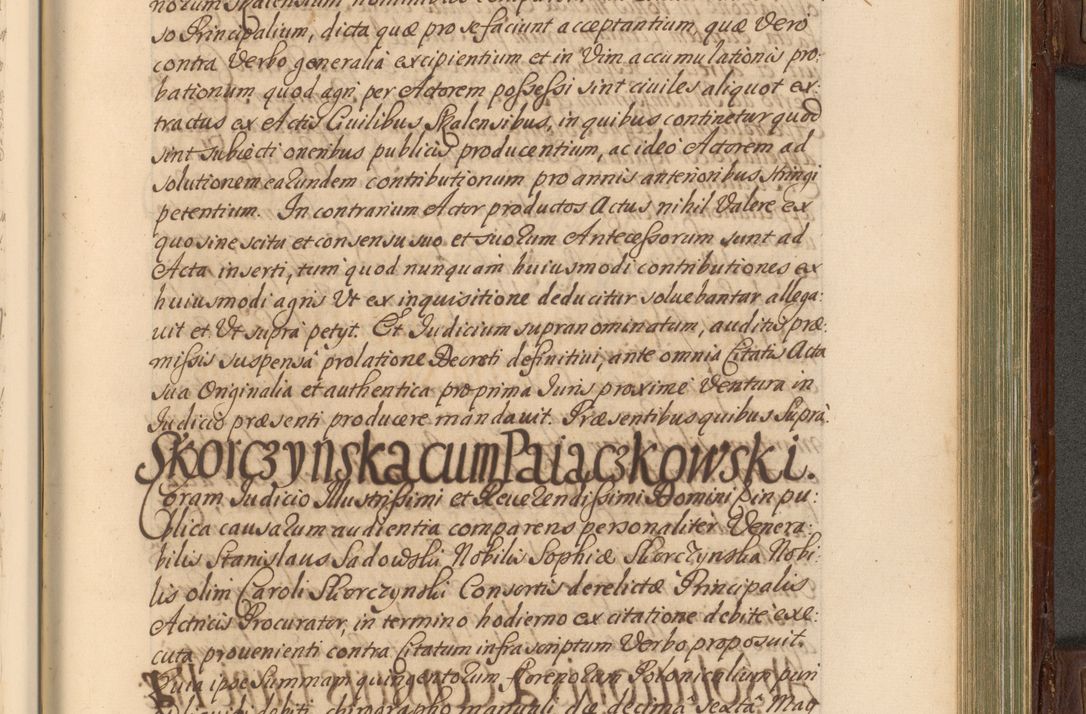 norum Skalensium nominibus
so Principalium, dicta quæ pro se faciunt acceptantium, quæ vero
contra Verbo generalia excipientium et in Vim accumulationis pro:
bationum quod agri per Actorem possessi sint civiles aliquot ex:
tractus ex Actis Civilibus Skalensibus, in quibus continetur quod
sint subiecti oneribus publicis producentium, ac ideo Actorem ad
solutionem earundem contributionum pro annis anterioribus stringi
petentium. In contrarium Actor productos Actus nihil Valere ex
quo sine scitu et consensu suo et suorum Antecessorum sunt ad
Acta inserti, tum quod nunquam huiusmodi contributiones ex
huiusmodi agris Ut ex inquisitione deducitur soluebantur allega:
uit et Ut supra petyt. Et Iudicium supranominatum, auditis præ:
missis suspensa prolatione Decreti definitiui, ante omnia Citatis Acta
sua Originalia et authentica pro prima Iuris proxime Ventura in
Iudicio præsenti producere mandauit. Præsentibus quibus Supra.
Skorczynska cum Paiączkowski.
Coram Iudicio Illustrissimi et Reverendissimi Domini in pu:
blica causarum audientia comparens personaliter Venera:
bilis Stanislaus Sadowski Nobilis Sophiæ Skorczynska Nobi:
lis olim Caroli Skorczynski Consortis derelictæ Principalis
Actricis Procurator, in termino hodierno ex citatione debite exe:
cuta provenienti contra Citatum infrascriptum Verbo proposuit.
Quia ipse Summam quingentorum florenorum Polonicalium puri
debiti chirographo manuali die decima sexta